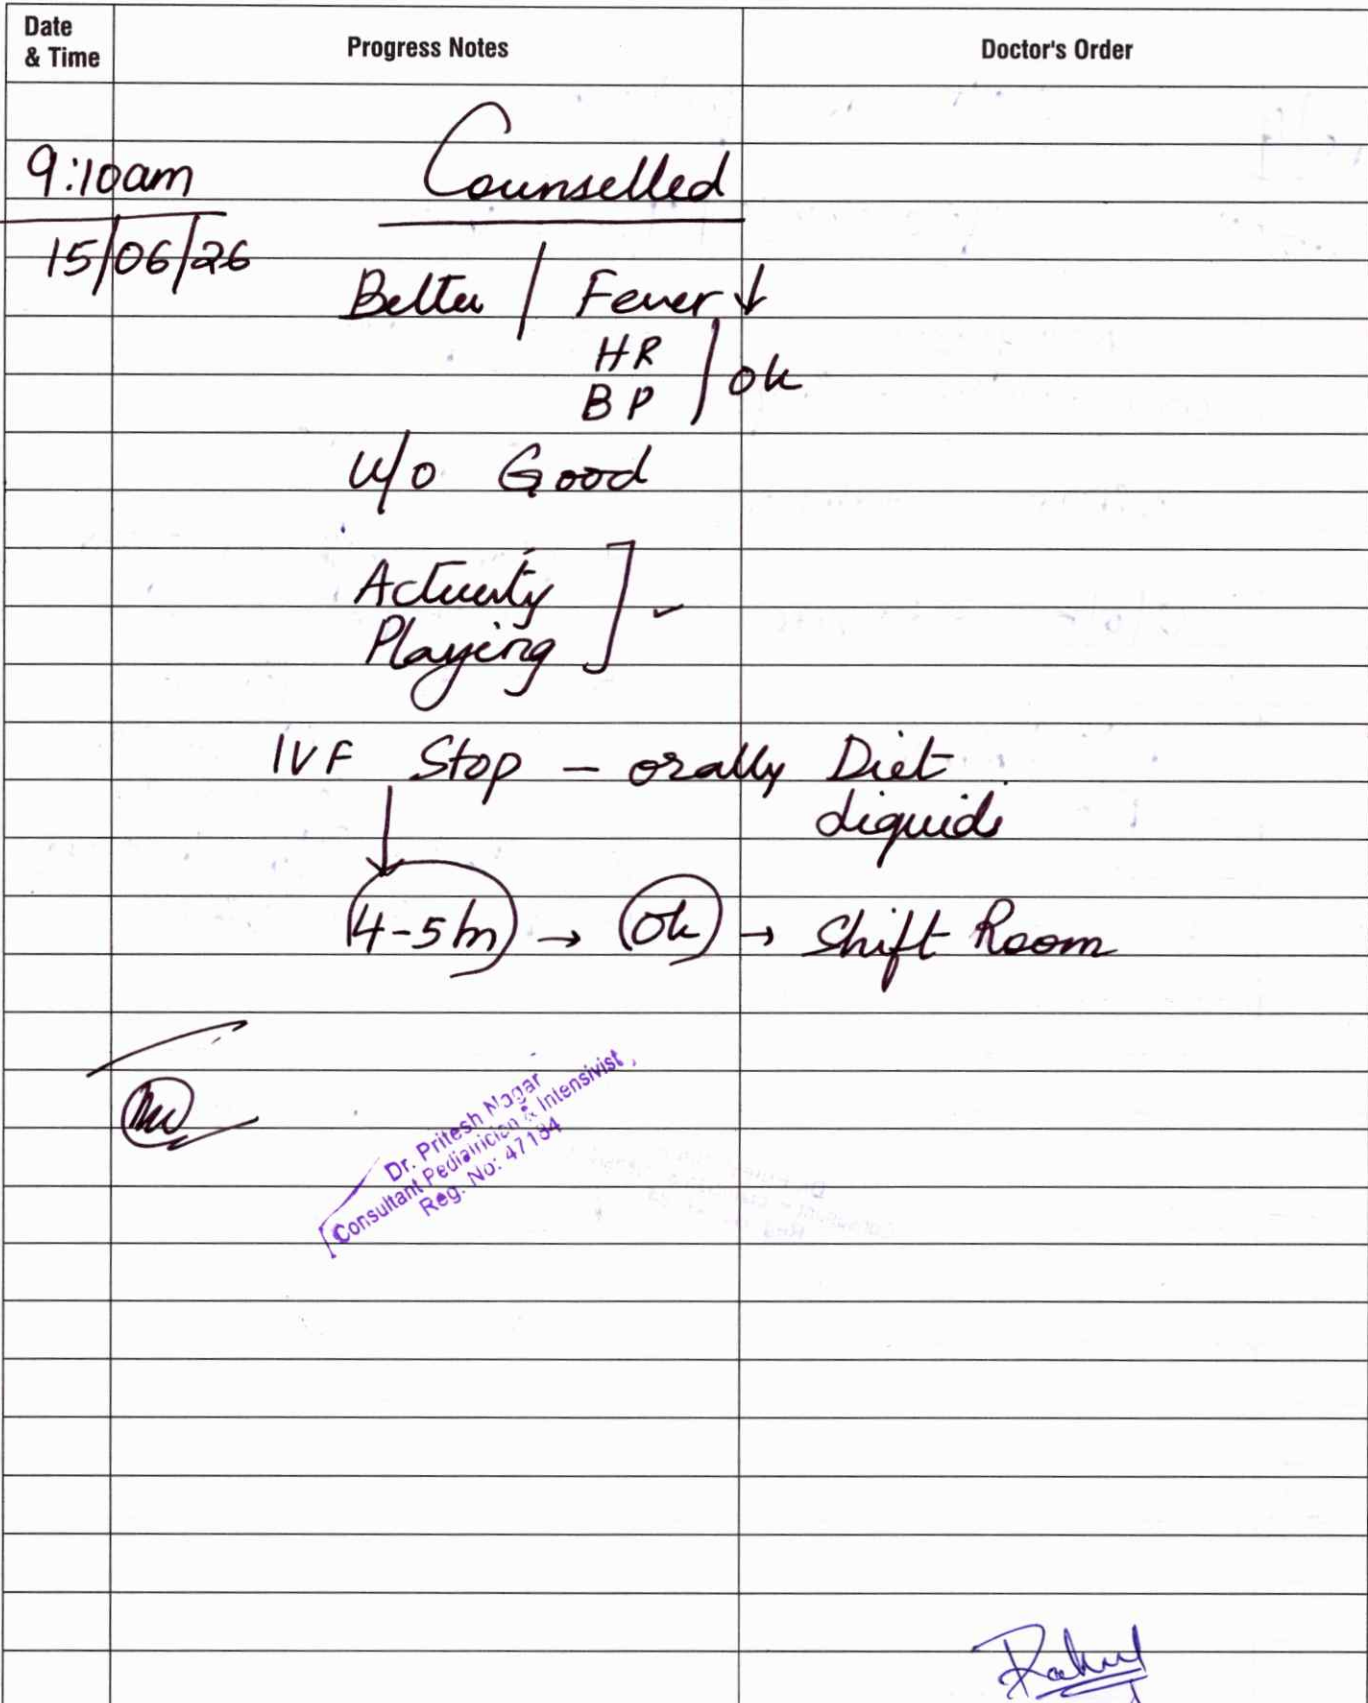 Date & Time
Progress Notes
Doctor's Order
9:10am
Counselled
15/06/26
Better / Fever ↓
HR
BP / ok
U/o Good
Activity
Playing ] ✓
IVF Stop - orally Diet
Liquids
↓
4-5 hr → Ok → Shift Room
Dr. Pritesh Nagar
Consultant Pediatrician & Intensivist
Reg. No: 47184
Rahul